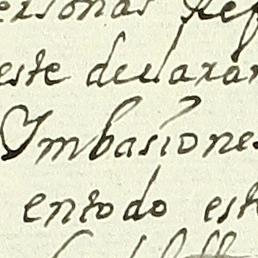 ersonas Ref
este declaran
Ymbasiones
entodo este